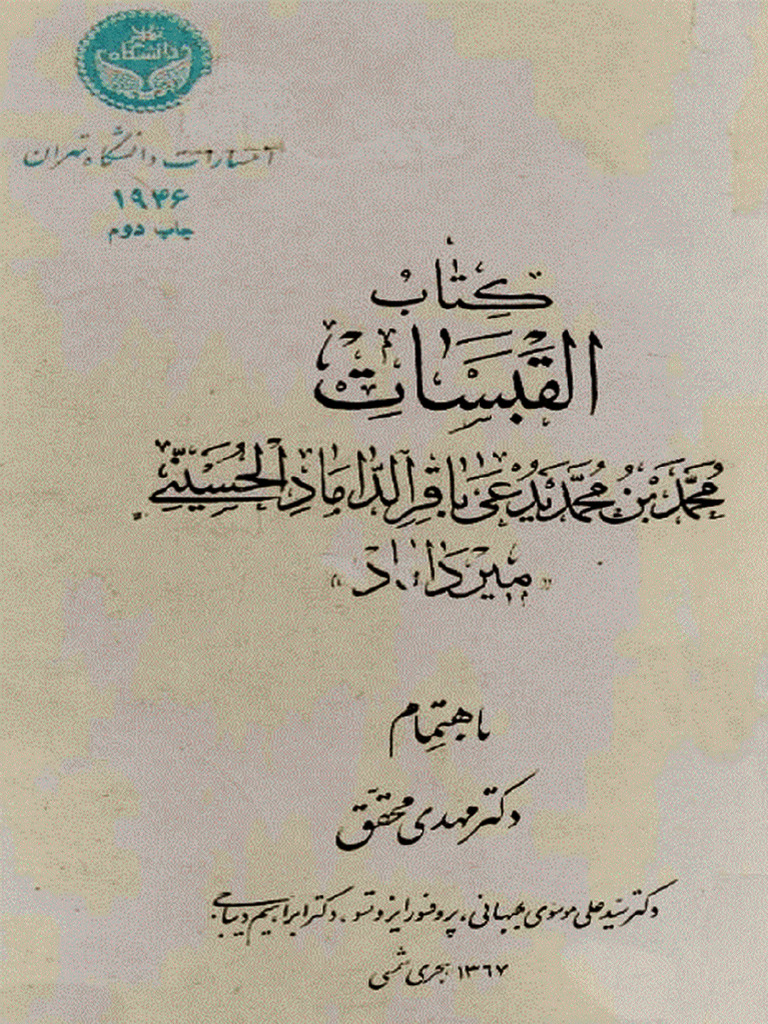 دانشگاه
انتشارات دانشگاه تهران
۱۹۴۶
چاپ دوم
کِتٰابُ
القَبَسَاتِ
مُحَمَّد بْنُ مُحَمَّد یُدْعیٰ بٰاقِرِ الدّامٰادِ الحُسَیْنِّی
«میرداماد»
باهتمام
دکتر مهدی محقّق
دکتر سیّد علی موسوی بهبهانی، پروفسور ایزوتسو، دکتر ابراهیم دیباجی
۱۳۶۷ هجری شمسی